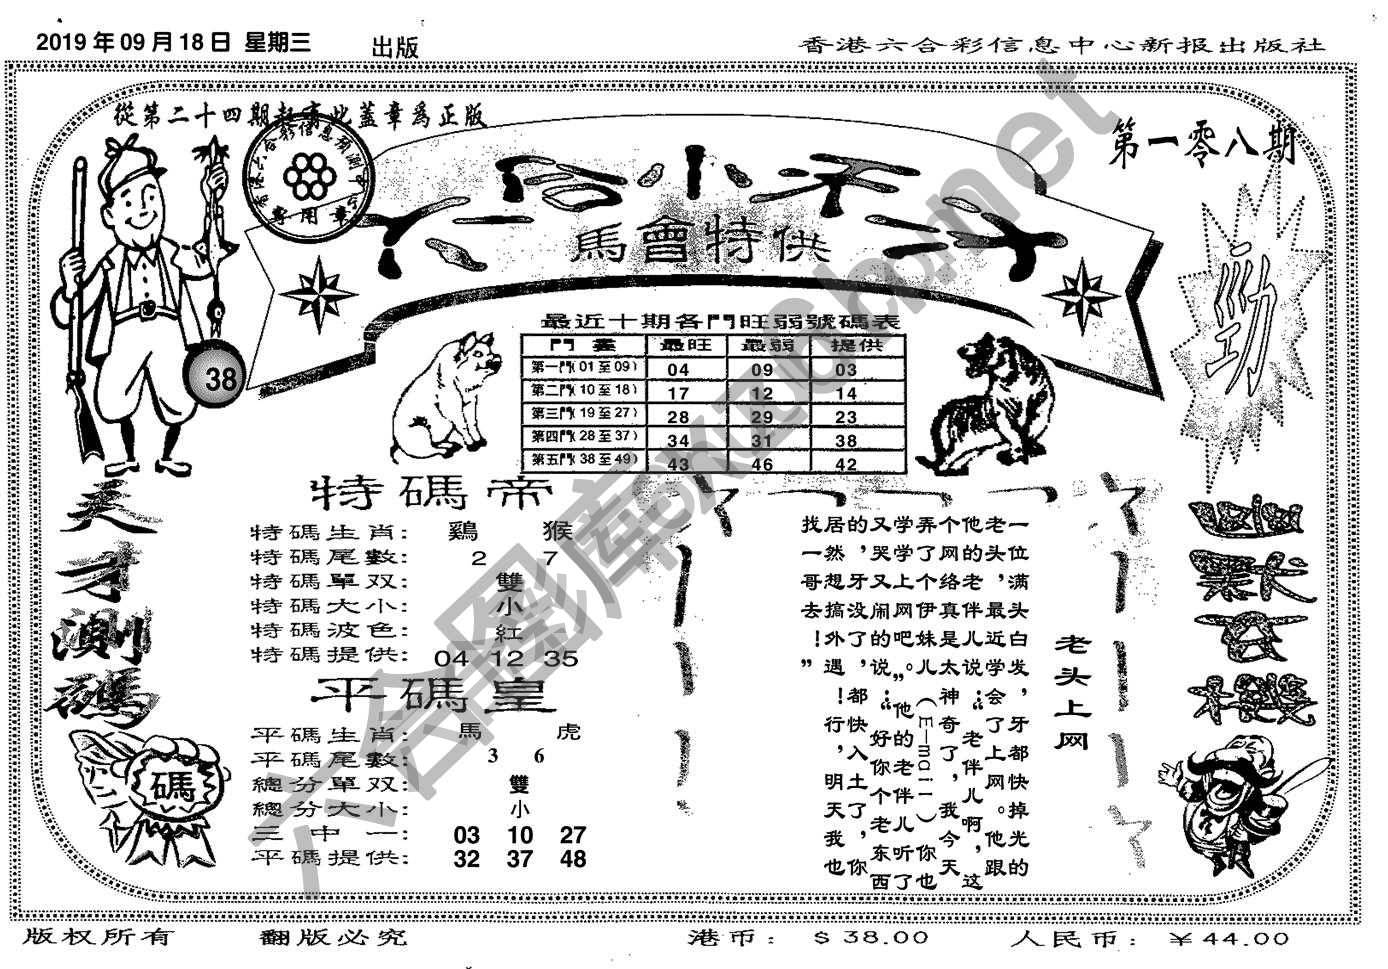 2019 年 09 月 18 日 星期三
出版
香港六合彩信息中心新报出版社
從第二十四期起寄此蓋章爲正版
第一零八期
馬會特供
專用章
38
勁
最近十期各門旺弱號碼表
門 最旺 最弱 提供
第一門(01 至 09) 04 09 03
第二門(10 至 18) 17 12 14
第三門(19 至 27) 28 29 23
第四門(28 至 37) 34 31 38
第五門(38 至 49) 43 46 42
天才測碼
碼
特碼帝
特碼生肖: 鷄 猴
特碼尾數: 2 7
特碼單双: 雙
特碼大小: 小
特碼波色: 紅
特碼提供: 04 12 35
平碼皇
平碼生肖: 馬 虎
平碼尾數: 3 6
總分單双: 雙
總分大小: 小
三中一: 03 10 27
平碼提供: 32 37 48
老头上网
一位满头白发，牙都快掉光的
老头，最近学会了上网。他跟
他的老伴儿说：“老伴儿啊，这
个网络真是太神奇了，我今天
弄了个伊妹儿（E—mail）你也
学学上网吧。”他的老伴儿听了
又哭又闹的说：“好你个老东西
的，牙没了，都快入土了，你
居然想搞外遇！行，明天我也
找一哥去！”
六合圖庫
版权所有 翻版必究
港币： $ 38.00
人民币： ￥44.00